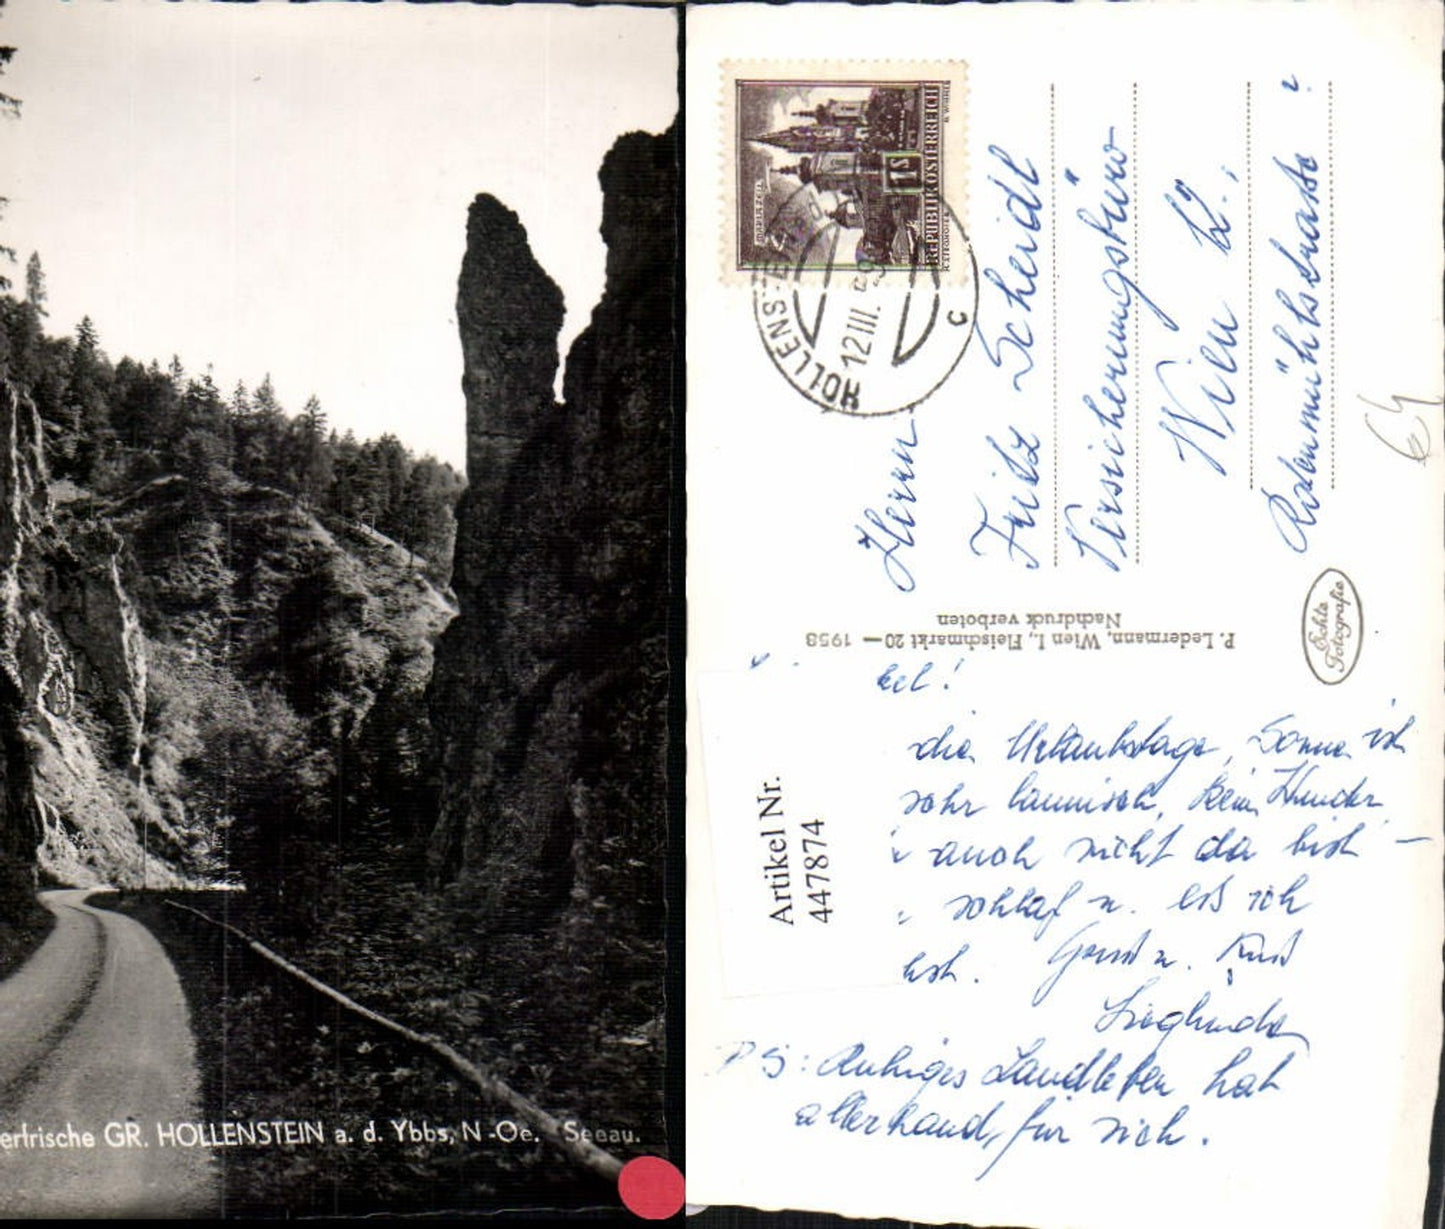 erfrische GR. HOLLENSTEIN a. d. Ybbs, N.-Oe. Seeau.
MARIAZELL
1S
REPUBLIK ÖSTERREICH
HOLLENSTEIN
12.III.59
C
Herrn
Fritz Scheidl
Versicherungsbüro
Wien 12.,
64
P. Ledermann, Wien I., Fleischmarkt 20 — 1958
Nachdruck verboten
Echte
Fotografie
Artikel Nr.
447874
kel!
die Urlaubstage, Sonne ist
sehr launisch, kein Wunder
auch nicht da bist —
schlaf u. eß ich
Gruß u. Kuß
Sieglinde
PS: Ruhiges Landleben hat
allerhand für sich.